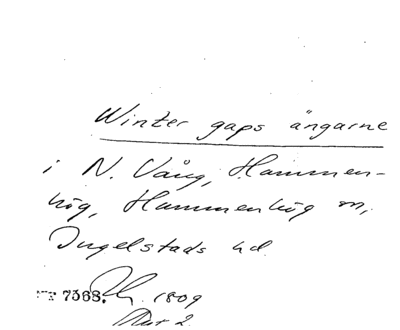 Winter gaps ängarne
i N. Vång, Hammen-
hög, Hammenhög sn,
Ingelstads hd.
7368. 1809